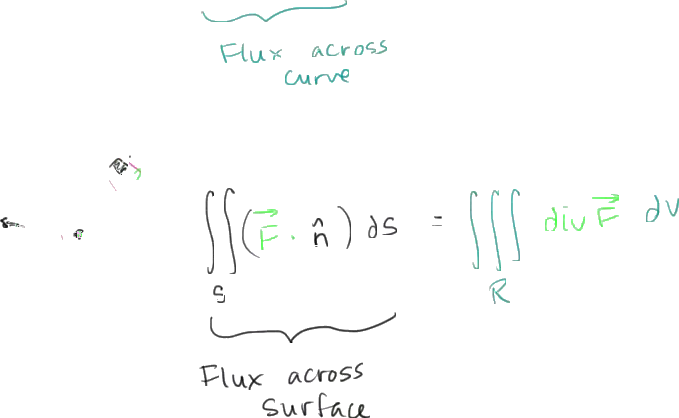 Flux across
curve
∬_S (F⃗ · n̂) ds = ∭_R div F⃗ dv
Flux across
surface